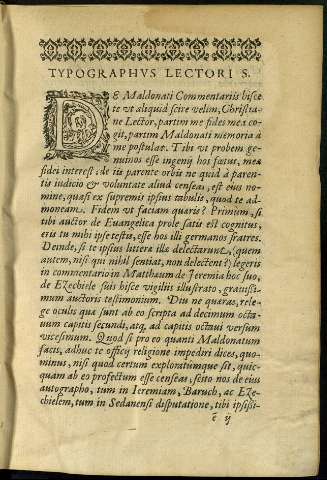 TYPOGRAPHVS LECTORI S.
DE Maldonati Commentariis hisce
te vt aliquid scire velim, Christia-
ne Lector, partim me fides mea co-
git, partim Maldonati memoria à
me postulat. Tibi vt probem ge-
nuinos esse ingenij hos fœtus, mea
fidei interest; de iis parente orbis ne quid à paren-
tis iudicio & voluntate aliud censeas, est eius no-
mine, quasi ex supremis ipsius tabulis, quod te ad-
moneam. Fidem vt faciam quæris? Primum, si
tibi auctor de Euangelica prole satis est cognitus,
eris tu mihi ipse testis, esse hos illi germanos fratres.
Deinde, si te ipsius litera illa delectarunt, (quem
autem, nisi qui nihil sentiat, non delectent?) legeris
in commentario in Matthæum de Ieremia hoc suo,
de Ezechiele suis hisce vigiliis illustrato, grauissi-
mum auctoris testimonium. Diu ne quæras, rele-
ge oculis quæ sunt ab eo scripta ad decimum octa-
uum capitis secundi, atq, ad capitis octaui versum
vicesimum. Quod si pro eo quanti Maldonatum
facis, adhuc te officij religione impediri dices, quo-
minus, nisi quod certum exploratumque sit, quic-
quam ab eo profectum esse censeas, scito nos de eius
autographo, tum in Ieremiam, Baruch, ac Eze-
chielem, tum in Sedanensi disputatione, tibi ipsissi-
ĉ ij